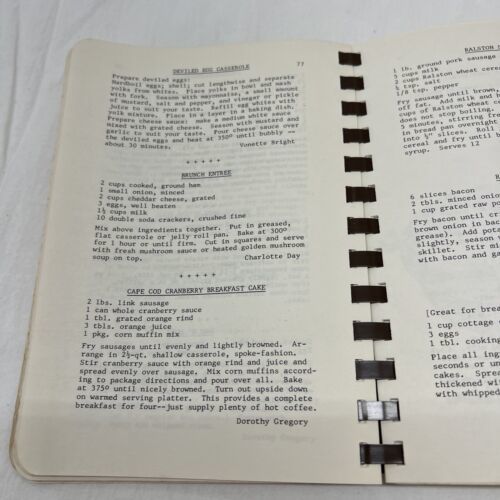 77
DEVILED EGG CASSEROLE
Prepare deviled eggs:
Hardboil eggs; shell; cut lengthwise and separate
yolks from whites. Place yolks in bowl and mash
with fork. Season with mayonnaise, a small amount
of mustard, salt and pepper, and vinegar or pickle
juice to suit your taste. Refill egg whites with
yolk mixture. Place in a layer in a baking dish.
Prepare cheese sauce: make a medium white sauce
mixed with grated cheese. Season with mustard and
garlic to suit your taste. Pour cheese sauce over
the deviled eggs and heat at 350° until bubbly --
about 30 minutes. Vonette Bright
+ + + + +
BRUNCH ENTREE
2 cups cooked, ground ham
1 small onion, minced
2 cups cheddar cheese, grated
3 eggs, well beaten
1½ cups milk
10 double soda crackers, crushed fine
Mix above ingredients together. Put in greased,
flat casserole or jelly roll pan. Bake at 300°
for 1 hour or until firm. Cut in squares and serve
with fresh mushroom sauce or heated golden mushroom
soup on top. Charlotte Day
+ + + + +
CAPE COD CRANBERRY BREAKFAST CAKE
2 lbs. link sausage
1 can whole cranberry sauce
1 tbl. grated orange rind
3 tbls. orange juice
1 pkg. corn muffin mix
Fry sausages until evenly and lightly browned. Ar-
range in 2½-qt. shallow casserole, spoke-fashion.
Stir cranberry sauce with orange rind and juice and
spread evenly over sausage. Mix corn muffins accord-
ing to package directions and pour over all. Bake
at 3750 until nicely browned. Turn out upside down
on warmed serving platter. This provides a complete
breakfast for four--just supply plenty of hot coffee.
Dorothy Gregory
RALSTON
1 lb. ground pork sausage
3 cups milk
2 cups Ralston wheat cere
salt
1/8 tsp. pepper
Fry sausage until brown,
off fat. Add milk and b
cups of Ralston wheat c
does not stop boiling.
5 minutes, stirring fre
in bread pan overnight
into ½" slices. Roll
cereal and fry until b
syrup. Serves 12
6 slices bacon
2 tbls. minced onio
1 cup grated raw po
Fry bacon until cr
brown onion in bac
grease). Add pota
slightly, season
skillet. Stir mi
with bacon and ga
[Great for break
1 cup cottage
3 eggs
1 tbl. cooking
Place all ing
seconds or un
cakes. Sprea
thickened wit
with whipped